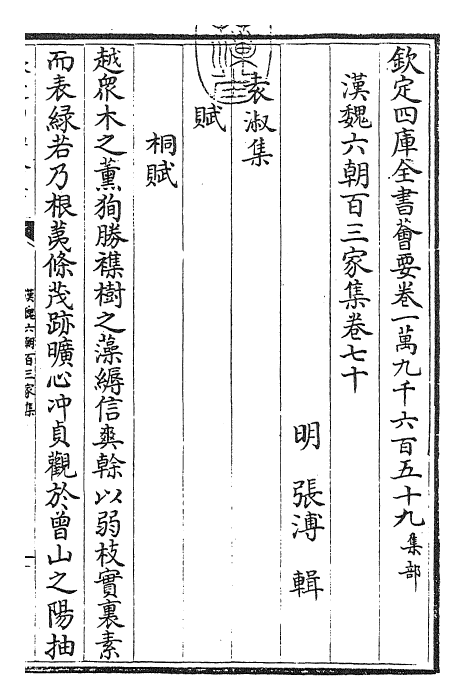 欽定四庫全書薈要卷一萬九千六百五十九集部
漢魏六朝百三家集卷七十
明 張溥 輯
袁淑集
賦
桐賦
越衆木之薰狥勝襍樹之藻縟信爽榦以弱枝實裏素
而表綠若乃根荑條茂跡曠心冲貞觀於曾山之陽抽
漢魏六朝百三家集
一